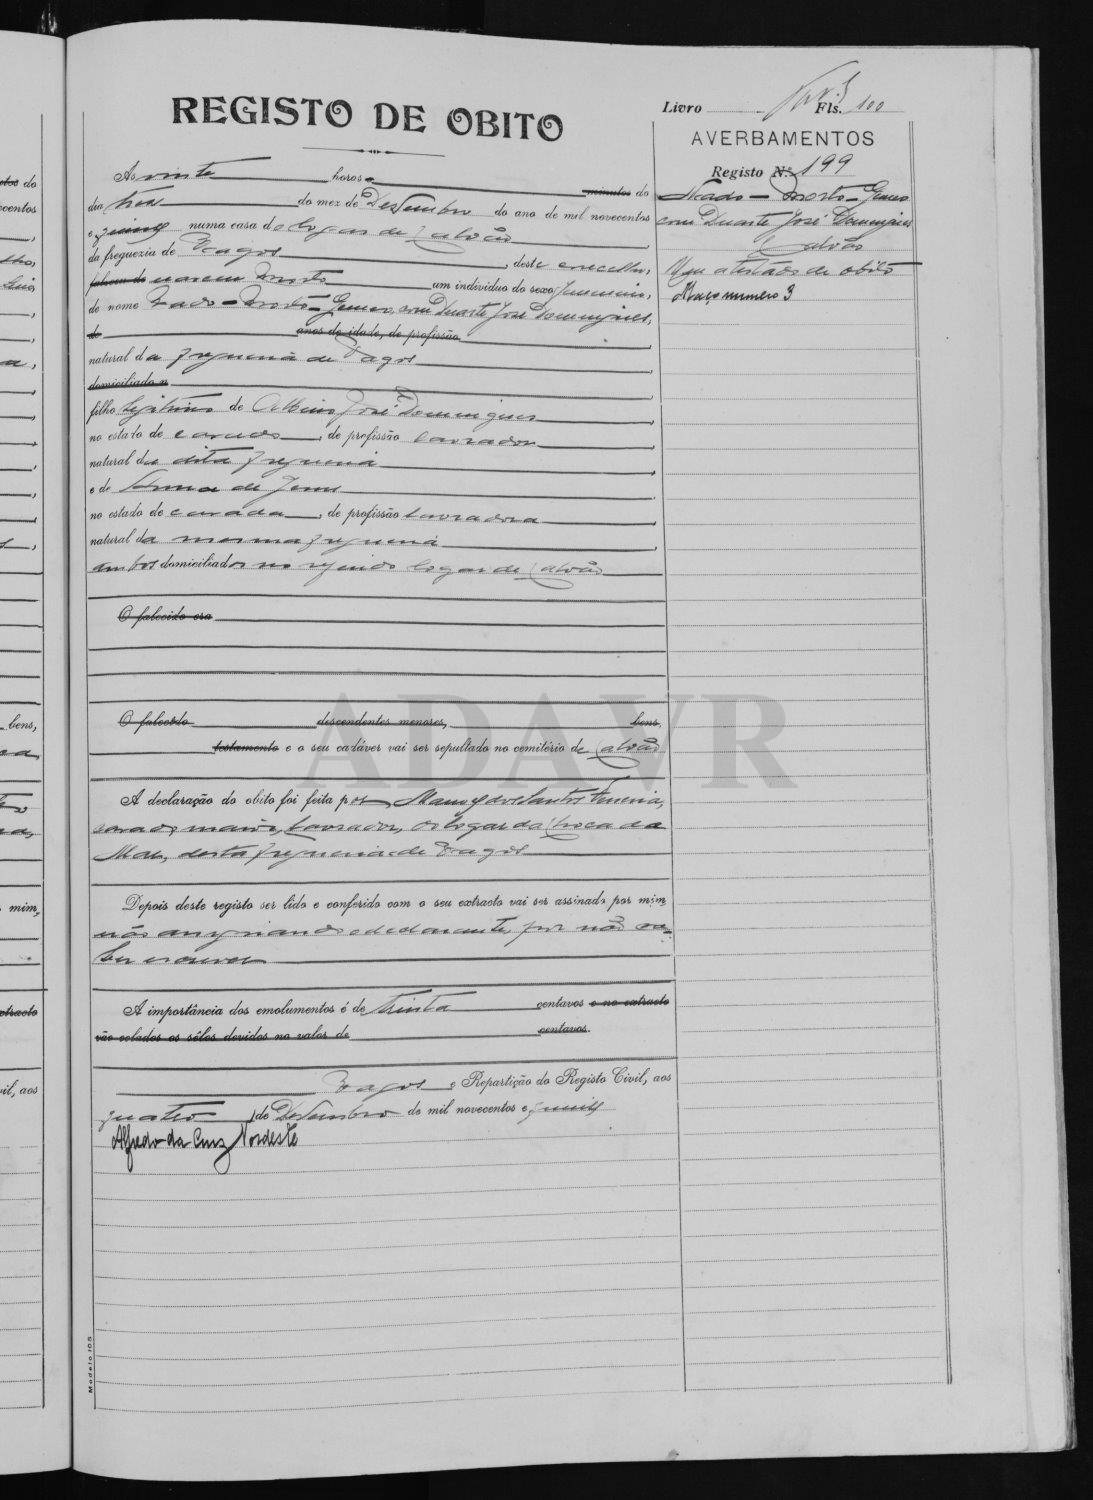 REGISTO DE OBITO
Livro Fls. 100
AVERBAMENTOS
Registo N.º 199
Nado-morto-Gemeo
com Duarte José Domingues
Calvão
Um atestado de obito
Maço numero 3
As vinte horas e minutos do
dia tres do mez de Dezembro do ano de mil novecentos
e quinze numa casa do logar de Calvão
da freguezia de Vagos, deste concelho,
faleceu do nasceu morto um individuo do sexo femenino,
de nome Nado-Morto-Gemeo, com Duarte José Domingues,
de anos de idade, de profissão
natural da freguezia de Vagos
domiciliado n
filho legitimo de Albino José Domingues
no estado de casado, de profissão lavrador
natural da dita freguezia
e de de Jesus
no estado de casada, de profissão lavradora
natural da mesma freguezia
ambos domiciliados no referido logar de Calvão
O falecido era
O falecido descendentes menores, bens,
testamento e o seu cadáver vai ser sepultado no cemitério de Calvão
A declaração do obito foi feita por Manoel dos Santos
casado, maior, lavrador, do logar da
desta freguezia de Vagos
Depois deste registo ser lido e conferido com o seu extracto vai ser assinado por mim,
não assignando o declarante, por não sa-
ber escrever
A importância dos emolumentos é de trinta centavos e no extracto
vão colados os sêlos devidos no valor de centavos.
Vagos e Repartição do Registo Civil, aos
quatro de Dezembro de mil novecentos e quinze
Alfredo da Cruz Nordeste
Modelo 105
ADAVR